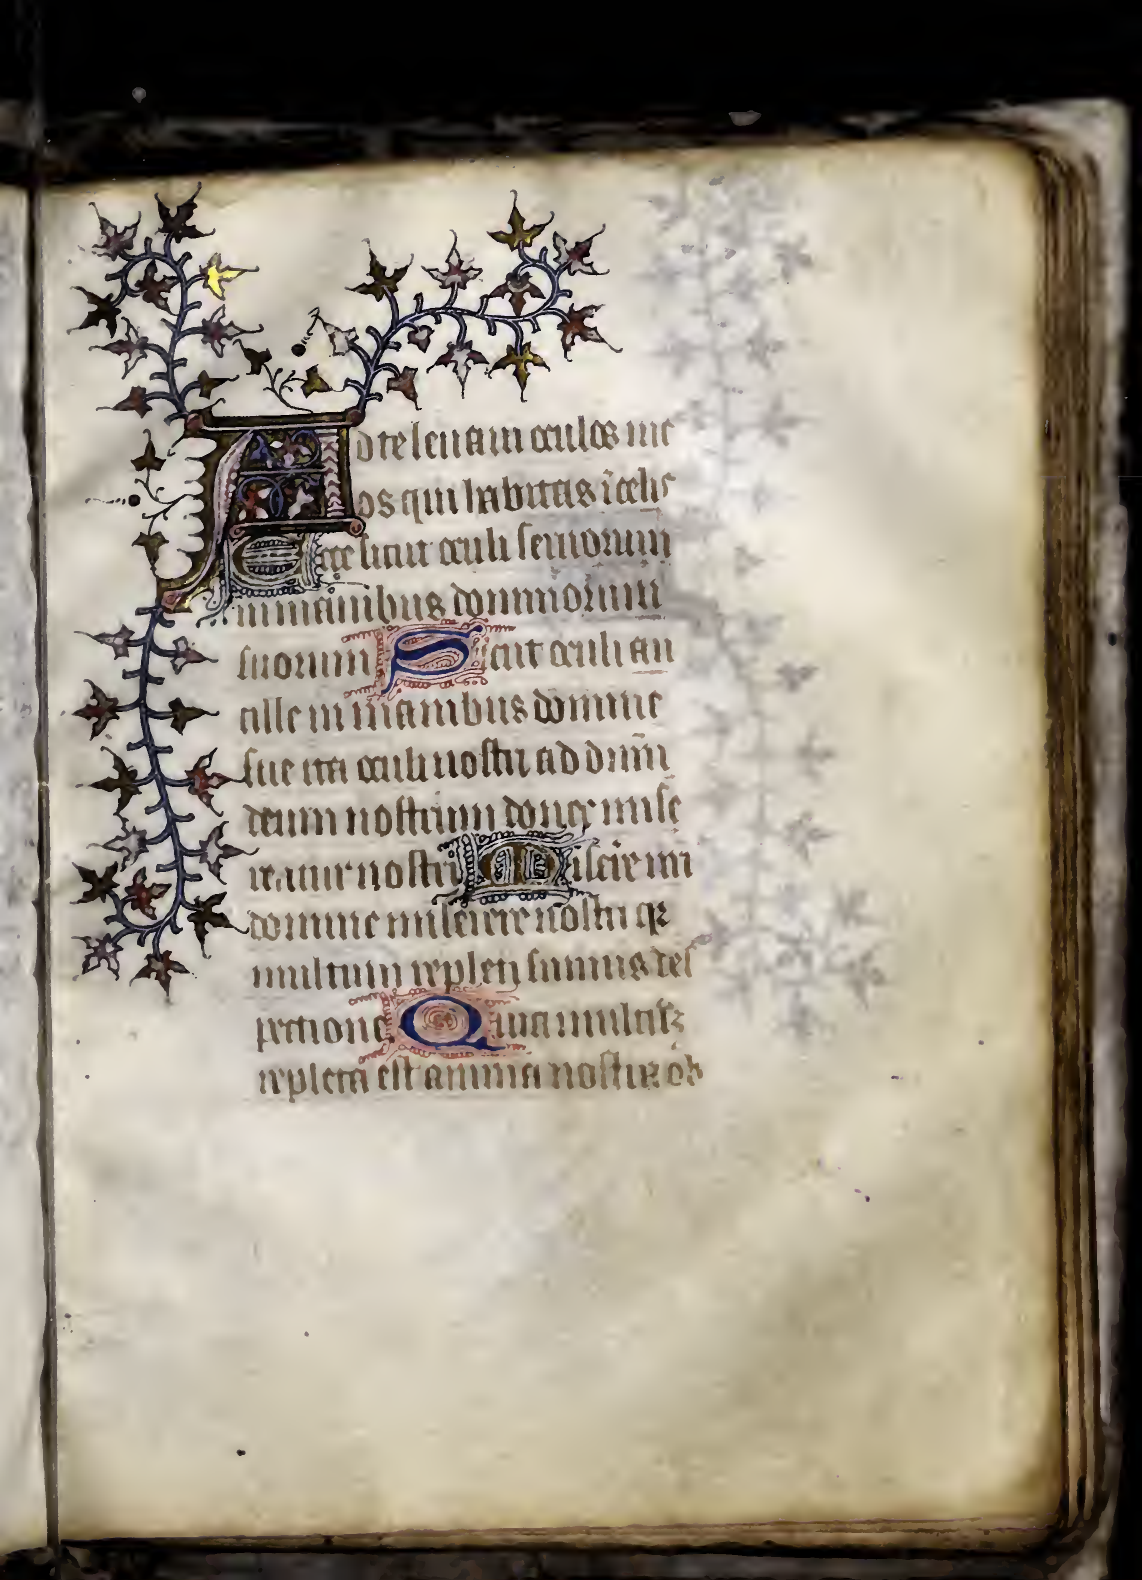 Ad te leuam oculos me
os qui habitas ī celis
Ecce sicut oculi seruorum
in manibus dominorum
suorum Sicut oculi an
cille in manibus domine
sue ita oculi nostri ad dn̄m
deum nostrum donec mise
reatur nostri Miserere nr̄i
domine miserere nostri qr
multum repleti sumus des
pectione Quia multū
repleta est anima nostra ob